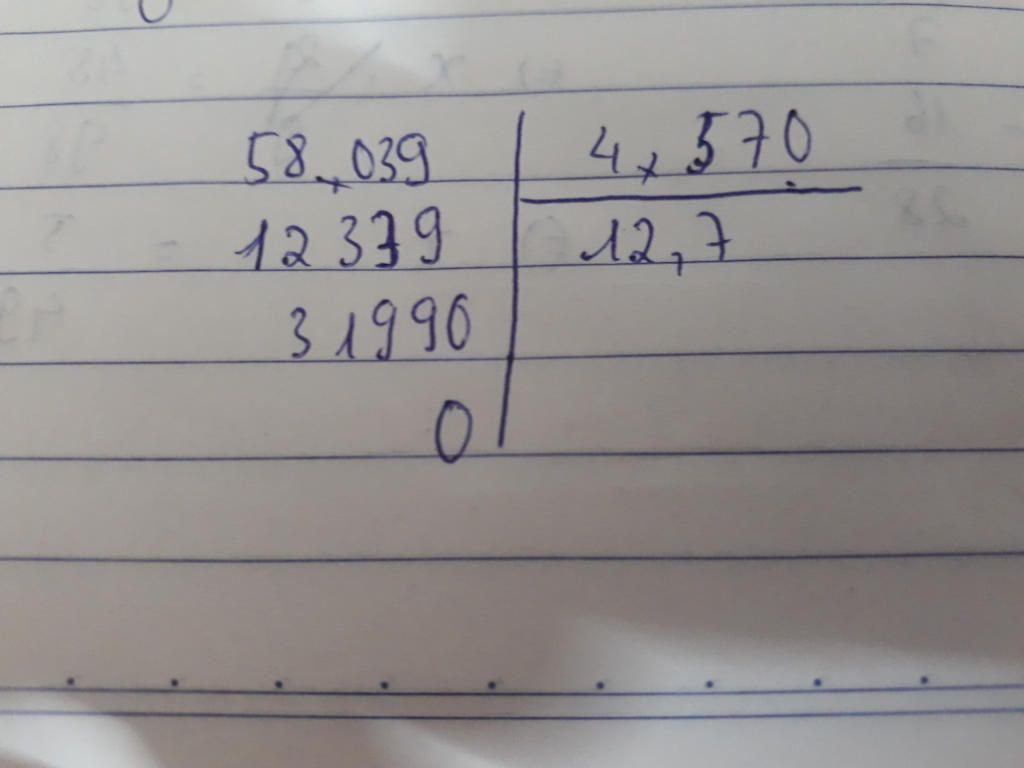 58,039 4,570
12379 12,7
31990
0